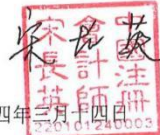 宋长英
中國注冊
會計師
宋長英
220101240003
四年三月十四日